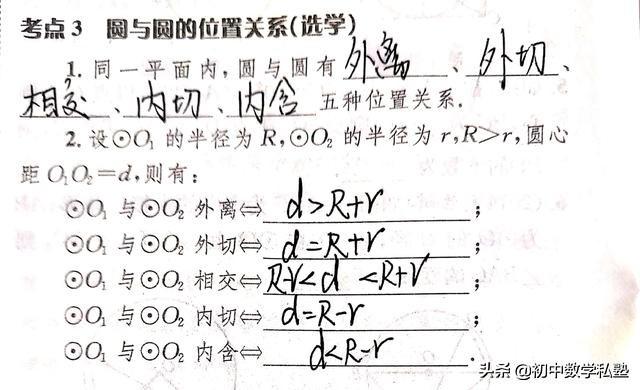 考点3 圆与圆的位置关系(选学)
1. 同一平面内,圆与圆有 外离 、 外切 、
相交 、 内切 、 内含 五种位置关系.
2. 设⊙O₁ 的半径为 R,⊙O₂ 的半径为 r,R>r,圆心
距 O₁O₂=d,则有:
⊙O₁ 与⊙O₂ 外离⇔ d>R+r ;
⊙O₁ 与⊙O₂ 外切⇔ d=R+r ;
⊙O₁ 与⊙O₂ 相交⇔ R-r<d<R+r ;
⊙O₁ 与⊙O₂ 内切⇔ d=R-r ;
⊙O₁ 与⊙O₂ 内含⇔ d<R-r .
头条 @初中数学私塾